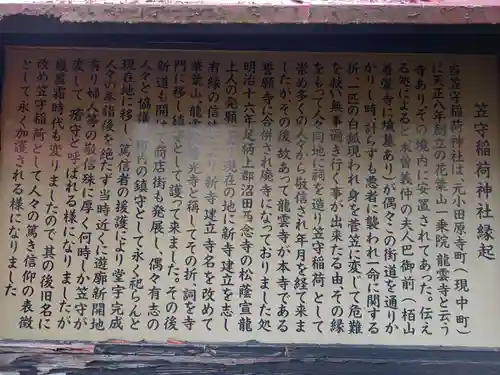 笠守稲荷神社縁起
当笠守稲荷神社は、元小田原寺町(現中町)
に天正八年創立の花葉山一乗院龍雲寺と云う
寺ありその境内に安置されてあった。伝え
る処によると木曽義仲の夫人巴御前(栢山
善栄寺に墳墓あり)が偶々この街道を通りか
かりし時、計らずも悪者に襲われ一命に関する
折、一匹の白狐現われ身を菅笠に変じて危難
を救い無事通き行く事が出来たる由その縁
をもって人々同地に祠を造り笠守稲荷として
崇め多くの人々から敬信され年月を経て来ま
したがその後、故あって龍雲寺が本寺である
誓願寺に合併され廃寺になっておりました処
明治十六年足柄上郡沼田西念寺の松蔭宣龍
上人の発願により現在の地に新寺建立を志し
有縁の信者により新寺建立寺名を改めて
華葉山龍雲院光寺と称してその折、詞を寺
門に移し鎮守として護って来ました。その後
新道も開け商店街も発展し、偶々有志の
人々と協議町内の鎮守として永く祀らんと
現在地に移し、篤信者の援護により堂宇完成
人々の参詣後を絶たず当時近くに遊廓新開地
有り婦人等の敬信殊に厚く何時しか笠守が
変じて瘡守と呼ばれる様になりましたが
幾星霜時代も変りましたので其の後旧名に
改め笠守稲荷として人々の篤き信仰の表徴
として永く加護される様になりました